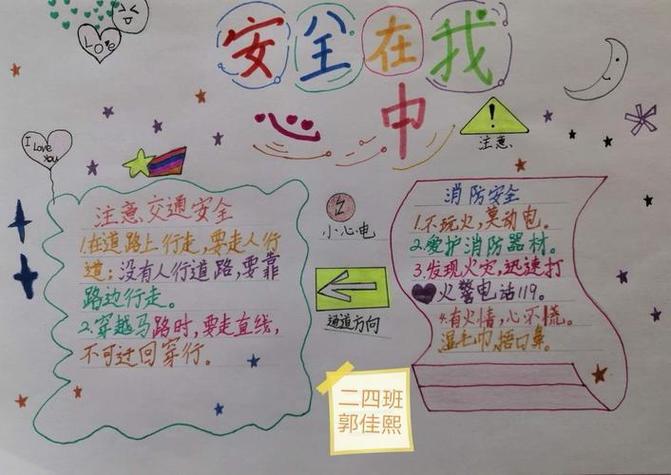 安全在我
心中
Love
I Love You
注意
注意交通安全
1.在道路上行走,要走人行
道;没有人行道路,要靠
路边行走。
2.穿越马路时,要走直线,
不可迂回穿行。
小心电
通道方向
消防安全
1.不玩火,莫动电。
2.爱护消防器材。
3.发现火灾,迅速打
火警电话119。
4.有火情,心不慌。
湿毛巾,捂口鼻。
二四班
郭佳熙